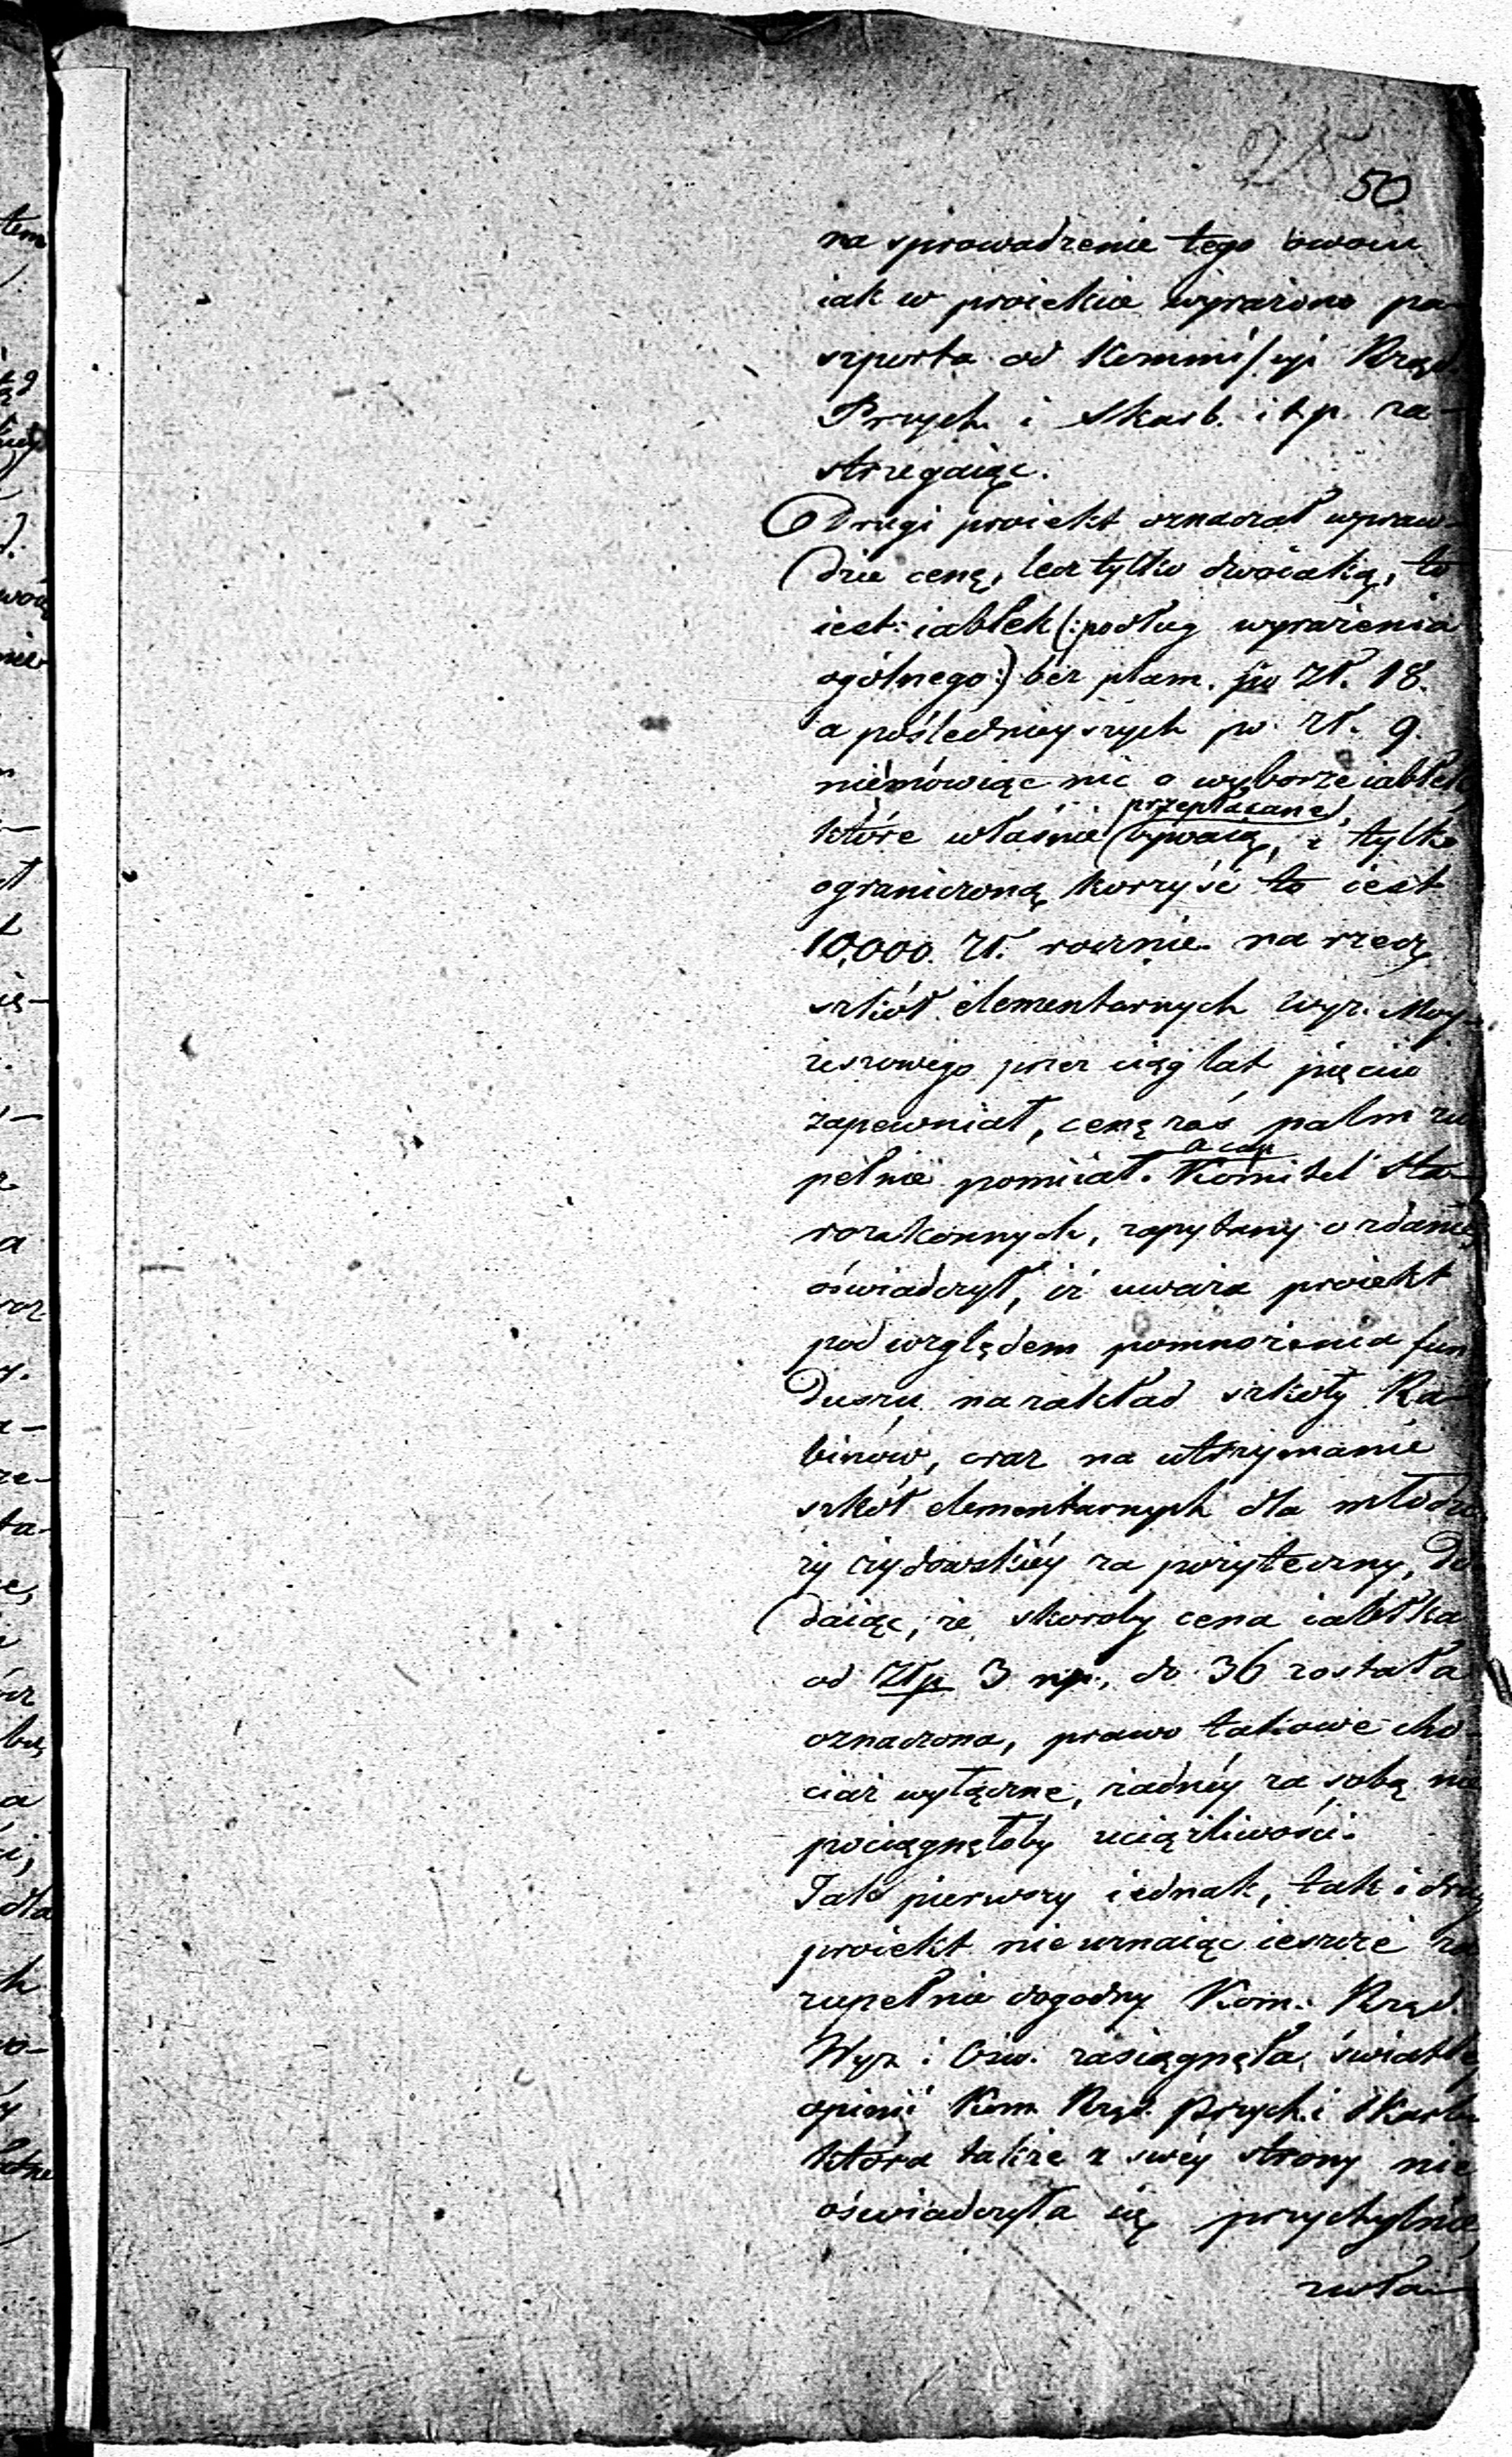 50
na sprowadzenie tego owocu
iak w proiekcie wyrażono pa-
szporta od Kommissyi Rząd.
Przych. i Skarb. i t. p. za-
strzegaiąc.
Drugi proiekt oznaczał wpraw-
dzie cenę, lecz tylko dwoiaką, to
iest: iabłek (: podług wyrażenia
ogólnego :) bez plam. po zł. 18.
a pośledniejszych po zł. 9.
niemówiąc nic o wyborze iabłek
przepłacane,
które właśnie bywaią, i tylko
ograniczoną korzyść to iest
10,000. zł. rocznie na rzecz
szkół elementarnych wyz. Moy-
żeszowego przez ciąg lat pięciu
zapewniał, cenę zaś palm zu
pełnie pomiiał. Komitet Sta-
rozakonnych, zapytany o zdanie,
oświadczył, iż uważa proiekt
pod względem pomnożenia fun
duszu na zakład szkoły Ra-
binów, oraz na utrzymanie
szkół elementarnych dla młodzie
ży żydowskiéy za pożyteczny, do
daiąc, że skoroby cena iabłka
od złp 3 np., do 36 została
oznaczona, prawo takowe cho-
ciaż wyłączne, żadnéy za sobą nie
pociągnęłoby uciążliwości.
Jak pierwszy iednak, tak i drugi
proiekt nie uznaiąc ieszcze za
zupełnie dogodny Kom. Rząd.
Wyz. i Ośw. zasiągnęła światłéy
opinii Kom Rząd. Przych. i Skarbu
która także z swéy strony nie
oświadczyła się przychylnie,
zwła-